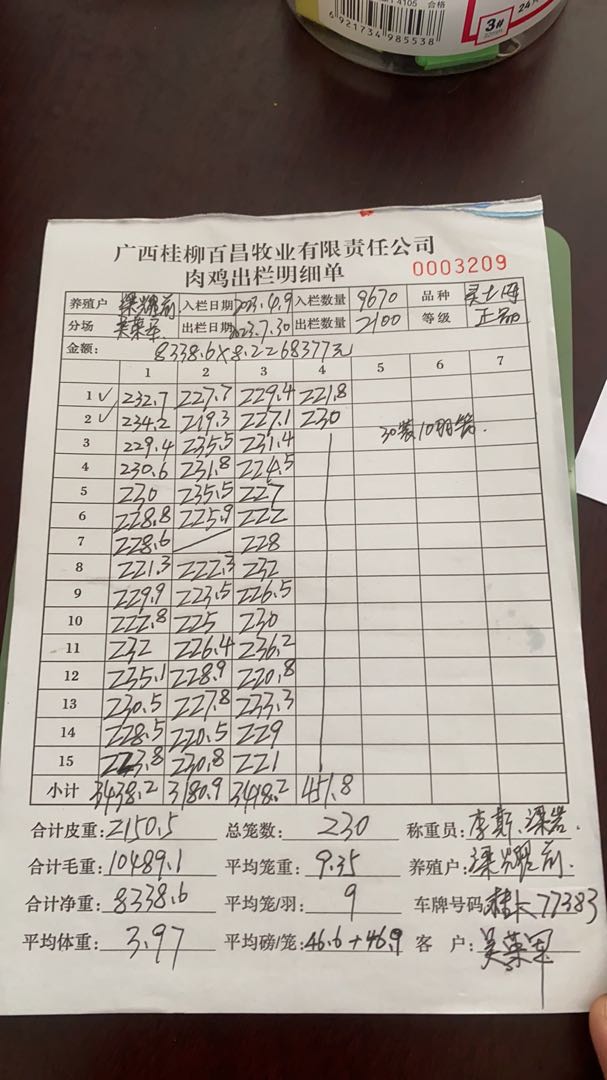 4105 合格
6 921734 985538
3#
24
广西桂柳百昌牧业有限责任公司
肉鸡出栏明细单
0003209
养殖户 梁耀前 入栏日期 2023.4.9 入栏数量 9670 品种
分场 吴荣军 出栏日期 2023.7.30 出栏数量 2100 等级 正品
金额: 8338.6×8.2=68377元
1 2 3 4 5 6 7
1 ✓ 232.7 227.7 229.4 221.8
2 ✓ 234.2 219.3 227.1 230 30装10羽笼.
3 229.4 235.5 231.4
4 230.6 231.8 224.5
5 230 235.5 227
6 228.8 225.9 222
7 228.6 228
8 221.3 222.3 232
9 229.9 223.5 226.5
10 222.8 225 230
11 232 226.4 236.2
12 235.1 228.9 220.8
13 230.5 227.8 233.3
14 228.5 220.5 229
15 223.8 230.8 221
小计 3438.2 3180.9 3418.2 451.8
合计皮重: 2150.5 总笼数: 230 称重员: 李斯、梁岩.
合计毛重: 10489.1 平均笼重: 9.35 养殖户: 梁耀前.
合计净重: 8338.6 平均笼/羽: 9 车牌号码 77383
平均体重: 3.97 平均磅/笼: 46.6+46.9 客 户: 吴荣军